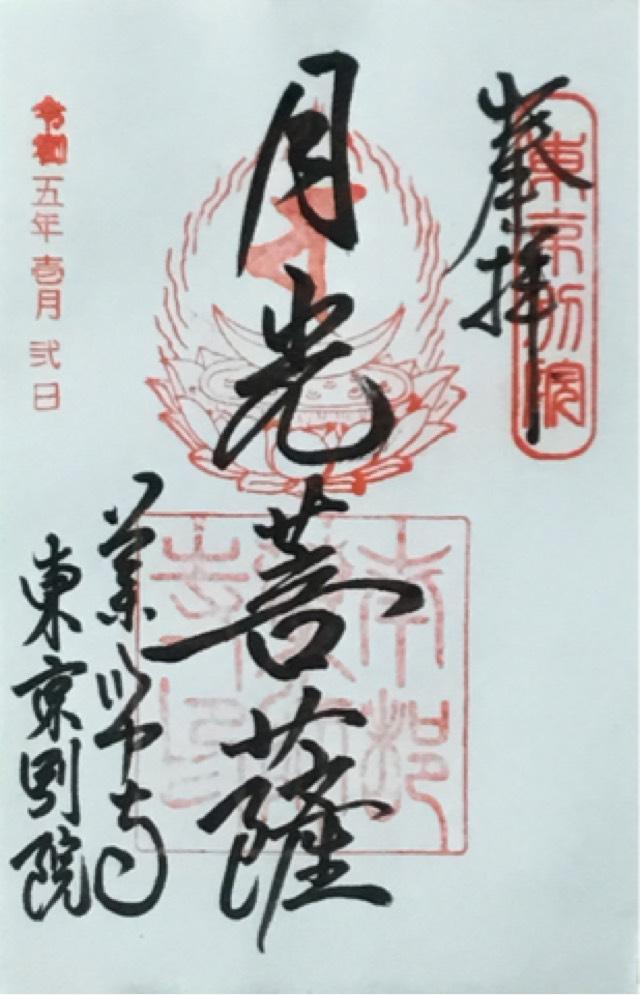 奉拝
東京別院
月光菩薩
薬師寺
東京別院
令和五年壱月弐日